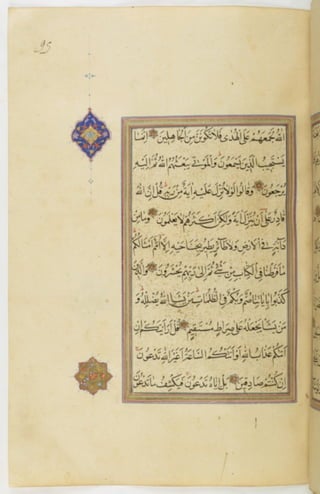 95
الله لجمعهم على الهدى فلا تكونن من الجاهلين انما
يستجيب الذين يسمعون والموتى يبعثهم الله ثم اليه
يرجعون وقالوا لولا نزل عليه اية من ربه قل ان الله
قادر على ان ينزل اية ولكن اكثرهم لا يعلمون وما من
دابة في الارض ولا طائر يطير بجناحيه الا امم امثالكم
ما فرطنا في الكتاب من شيء ثم الى ربهم يحشرون والذين
كذبوا باياتنا صم وبكم في الظلمات من يشا الله يضلله و
من يشا يجعله على صراط مستقيم قل ارايتكم ان
اتيكم عذاب الله او اتتكم الساعة اغير الله تدعون
ان كنتم صادقين بل اياه تدعون فيكشف ما تدعون